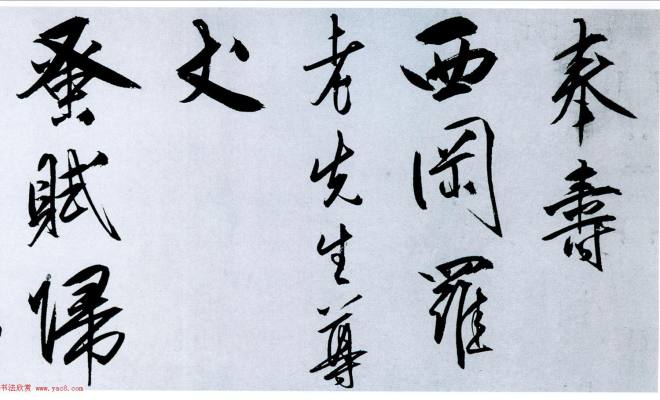 奉壽
西岡羅
老先生尊
丈
蚤賦歸
书法欣赏 www.yac8.com